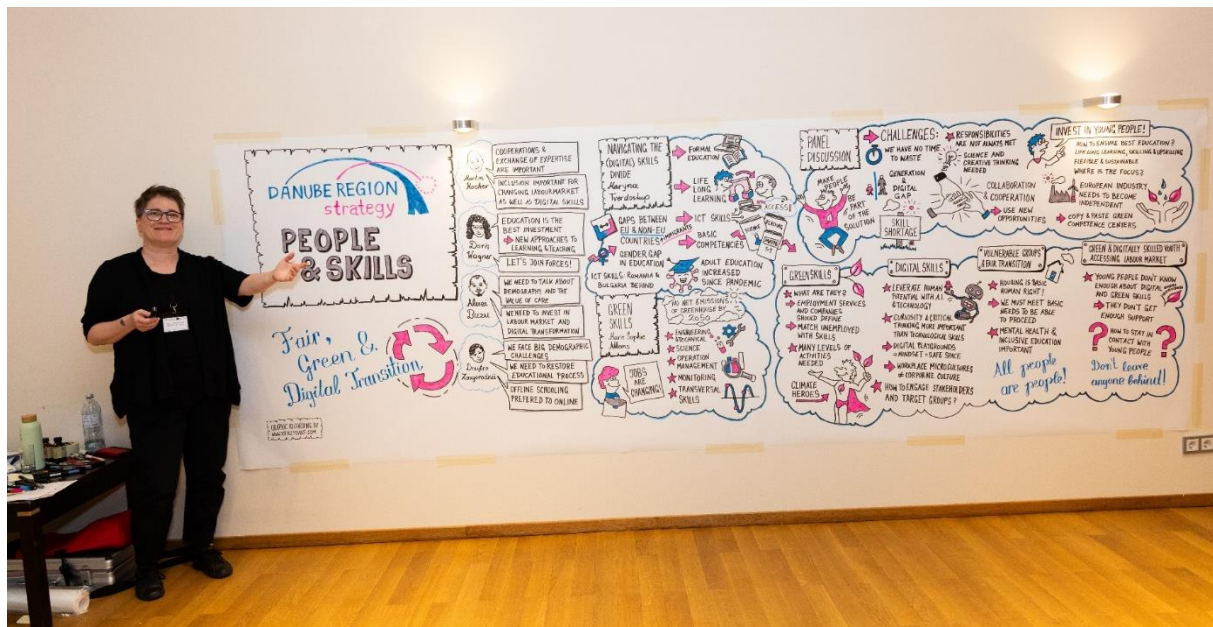 DANUBE REGION
strategy
PEOPLE
& SKILLS
Fair,
Green &
Digital Transition
GRAPHIC RECORDING BY
Martin
Kocher
COOPERATIONS &
EXCHANGE OF EXPERTISE
ARE IMPORTANT
INCLUSION IMPORTANT FOR
CHANGING LABOURMARKET
AS WELL AS DIGITAL SKILLS
Doris
Wagner
EDUCATION IS THE
BEST INVESTMENT
→ NEW APPROACHES TO
LEARNING & TEACHING
LET'S JOIN FORCES!
WE NEED TO TALK ABOUT
DEMOGRAPHY AND THE
VALUE OF CARE
WE NEED TO INVEST IN
LABOUR MARKET AND
DIGITAL TRANSFORMATION
Dmytro
WE FACE BIG DEMOGRAPHIC
CHALLENGES
WE NEED TO RESTORE
EDUCATIONAL PROCESS
OFFLINE SCHOOLING
PREFERED TO ONLINE
NAVIGATING THE
(DIGITAL) SKILLS
DIVIDE
Maryna
Tverdostup
FORMAL
EDUCATION
LIFE
LONG
LEARNING
ACCESS!
GAPS BETWEEN
EU & NON-EU
COUNTRIES + MIGRANTS
GENDER GAP
IN EDUCATION
ICT SKILLS: ROMANIA &
BULGARIA BEHIND
ICT SKILLS
BASIC
COMPETENCIES
ADULT EDUCATION
INCREASED
SINCE PANDEMIC
GREEN
SKILLS
Marie Sophie
NO NET EMISSIONS
OF GREENHOUSE BY
2050
ENGINEERING
& TECHNICAL
SCIENCE
OPERATION
MANAGEMENT
MONITORING
TRANSVERSAL
SKILLS
JOBS
ARE
CHANGING!
PANEL
DISCUSSION
CHALLENGES:
WE HAVE NO TIME
TO WASTE
RESPONSIBILITIES
ARE NOT ALWAYS MET
SCIENCE AND
CREATIVE THINKING
NEEDED
MAKE
PEOPLE
BE
PART OF
THE
SOLUTION
GENERATION
& DIGITAL
GAP
SKILL
SHORTAGE
COLLABORATION
& COOPERATION
USE NEW
OPPORTUNITIES
INVEST IN YOUNG PEOPLE!
HOW TO ENSURE BEST EDUCATION?
LIFE LONG LEARNING, SKILLING & UPSKILLING
FLEXIBLE & SUSTAINABLE
WHERE IS THE FOCUS?
EUROPEAN INDUSTRY
NEEDS TO BECOME
INDEPENDENT
COPY & PASTE GREEN
COMPETENCE CENTERS
GREEN SKILLS
WHAT ARE THEY?
EMPLOYMENT SERVICES
AND COMPANIES
SHOULD DEFINE
MATCH UNEMPLOYED
WITH SKILLS
MANY LEVELS OF
ACTIVITIES
NEEDED
CLIMATE
HEROES
DIGITAL SKILLS
LEVERAGE HUMAN
POTENTIAL WITH AI
& TECHNOLOGY
CURIOSITY & CRITICAL
THINKING MORE IMPORTANT
THAN TECHNOLOGICAL SKILLS
DIGITAL PLAYGROUNDS
= MINDSET + SAFE SPACE
WORKPLACE MICROCULTURES
≠ CORPORATE CULTURE
HOW TO ENGAGE STAKEHOLDERS
AND TARGET GROUPS?
VULNERABLE GROUPS
& FAIR TRANSITION
HOUSING IS BASIC
HUMAN RIGHT!
WE MUST MEET BASIC
NEEDS TO BE ABLE
TO PROCEED
MENTAL HEALTH &
INCLUSIVE EDUCATION
IMPORTANT
All people
are people!
GREEN & DIGITALLY SKILLED YOUTH
ACCESSING LABOUR MARKET
YOUNG PEOPLE DON'T KNOW
ENOUGH ABOUT DIGITAL
AND GREEN SKILLS
THEY DON'T GET
ENOUGH SUPPORT
? HOW TO STAY IN
CONTACT WITH
YOUNG PEOPLE ?
Don't leave
anyone behind!